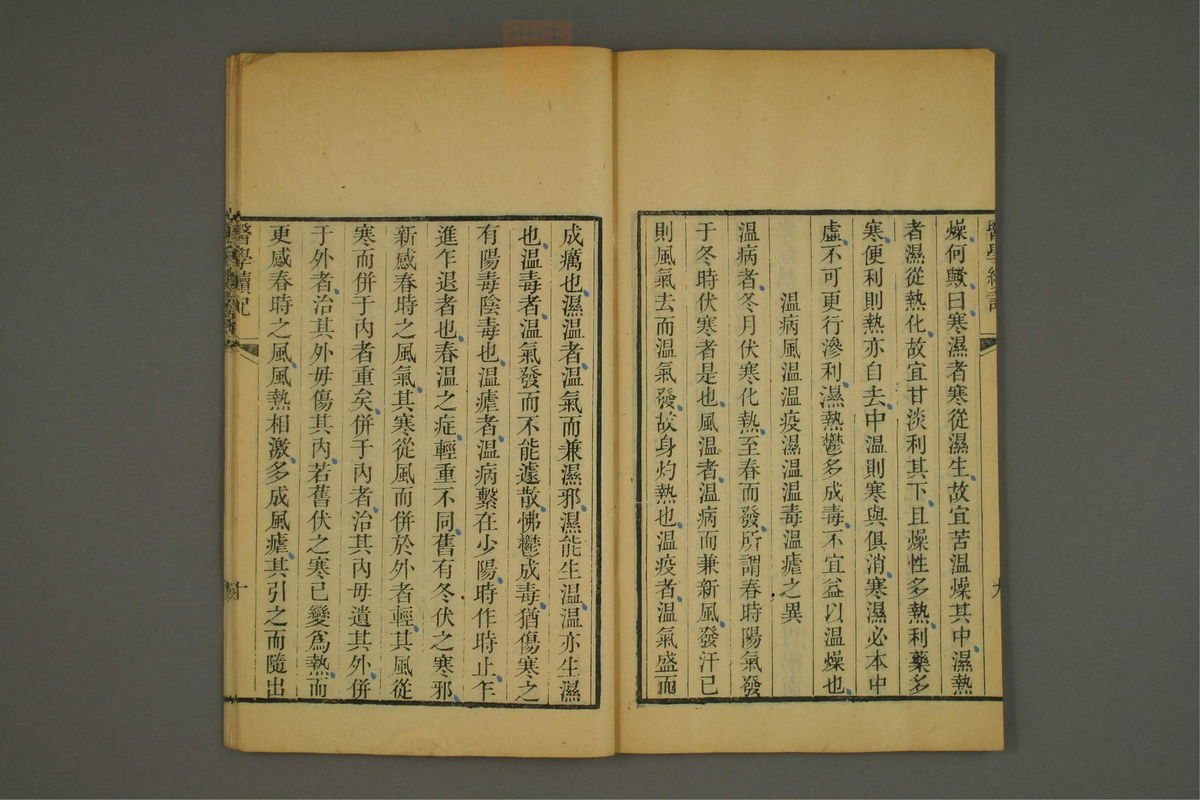 醫學續記
燥何歟曰寒濕者寒從濕生故宜苦温燥其中濕熱
者濕從熱化故宜甘淡利其下且燥性多熱利藥多
寒便利則熱亦自去中温則寒與俱消寒濕必本中
虛不可更行滲利濕熱鬱多成毒不宜益以温燥也
温病風温温疫濕温温毒温瘧之異
温病者冬月伏寒化熱至春而發所謂春時陽氣發
于冬時伏寒者是也風温者温病而兼新風發汗已
則風氣去而温氣發故身灼熱也温疫者温氣盛而
成癘也濕温者温氣而兼濕邪濕能生温温亦生濕
也温毒者温氣發而不能遽散怫鬱成毒猶傷寒之
有陽毒陰毒也温瘧者温病繫在少陽時作時止乍
進乍退者也春温之症輕重不同舊有冬伏之寒邪
新感春時之風氣其寒從風而併於外者輕其風從
寒而併于内者重矣併于内者治其内毋遺其外併
于外者治其外毋傷其内若舊伏之寒已變爲熱而
更感春時之風風熱相激多成風瘧其引之而隨出
醫學讀記
十